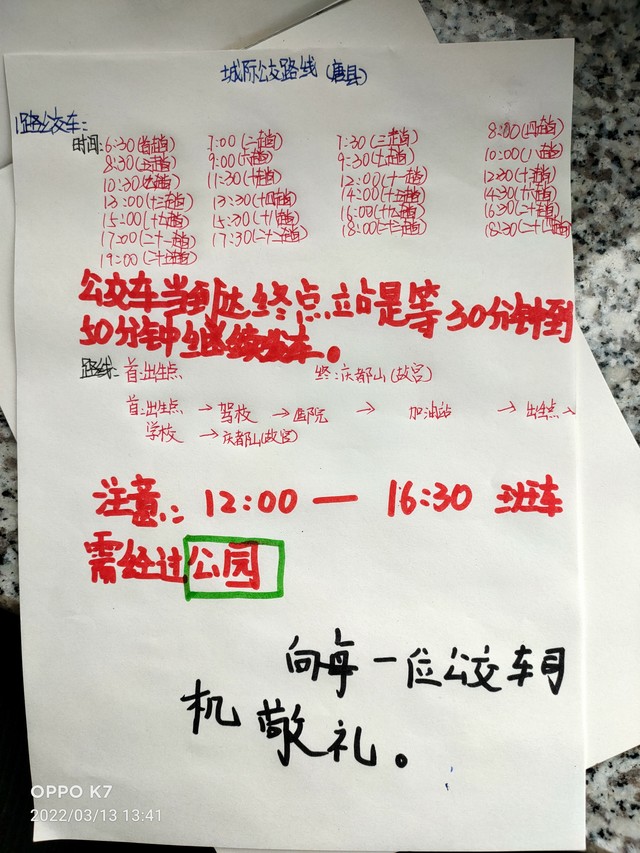 城际公交路线(唐县)
1路公交车:
时间:6:30(首趟) 7:00(二趟) 7:30(三趟) 8:00(四趟)
8:30(五趟) 9:00(六趟) 9:30(七趟) 10:00(八趟)
10:30(九趟) 11:30(十趟) 12:00(十一趟) 12:30(十二趟)
13:00(十三趟) 13:30(十四趟) 14:00(十五趟) 14:30(十六趟)
15:00(十七趟) 15:30(十八趟) 16:00(十九趟) 16:30(二十趟)
17:00(二十一趟) 17:30(二十二趟) 18:00(二十三趟) 18:30(二十四趟)
19:00(二十五趟)
公交车当到达终点站是等30分钟到
50分钟继续发车。
路线:首:出生点 终:庆都山(故宫)
首:出生点 → 驾校 → 医院 → 加油站 → 出生点
学校 → 庆都山(故宫)
注意:12:00 — 16:30 班车
需经过公园
向每一位公交车司
机敬礼。
OPPO K7
2022/03/13 13:41